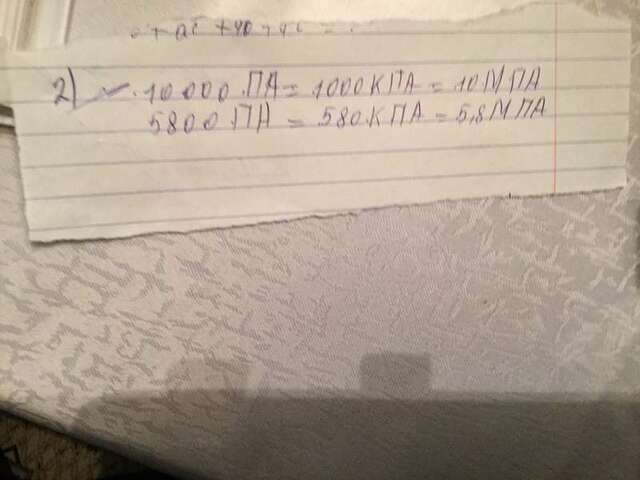 2) 10000 ПА = 1000 КПА = 10 МПА
5800 ПА = 580 КПА = 5,8 МПА